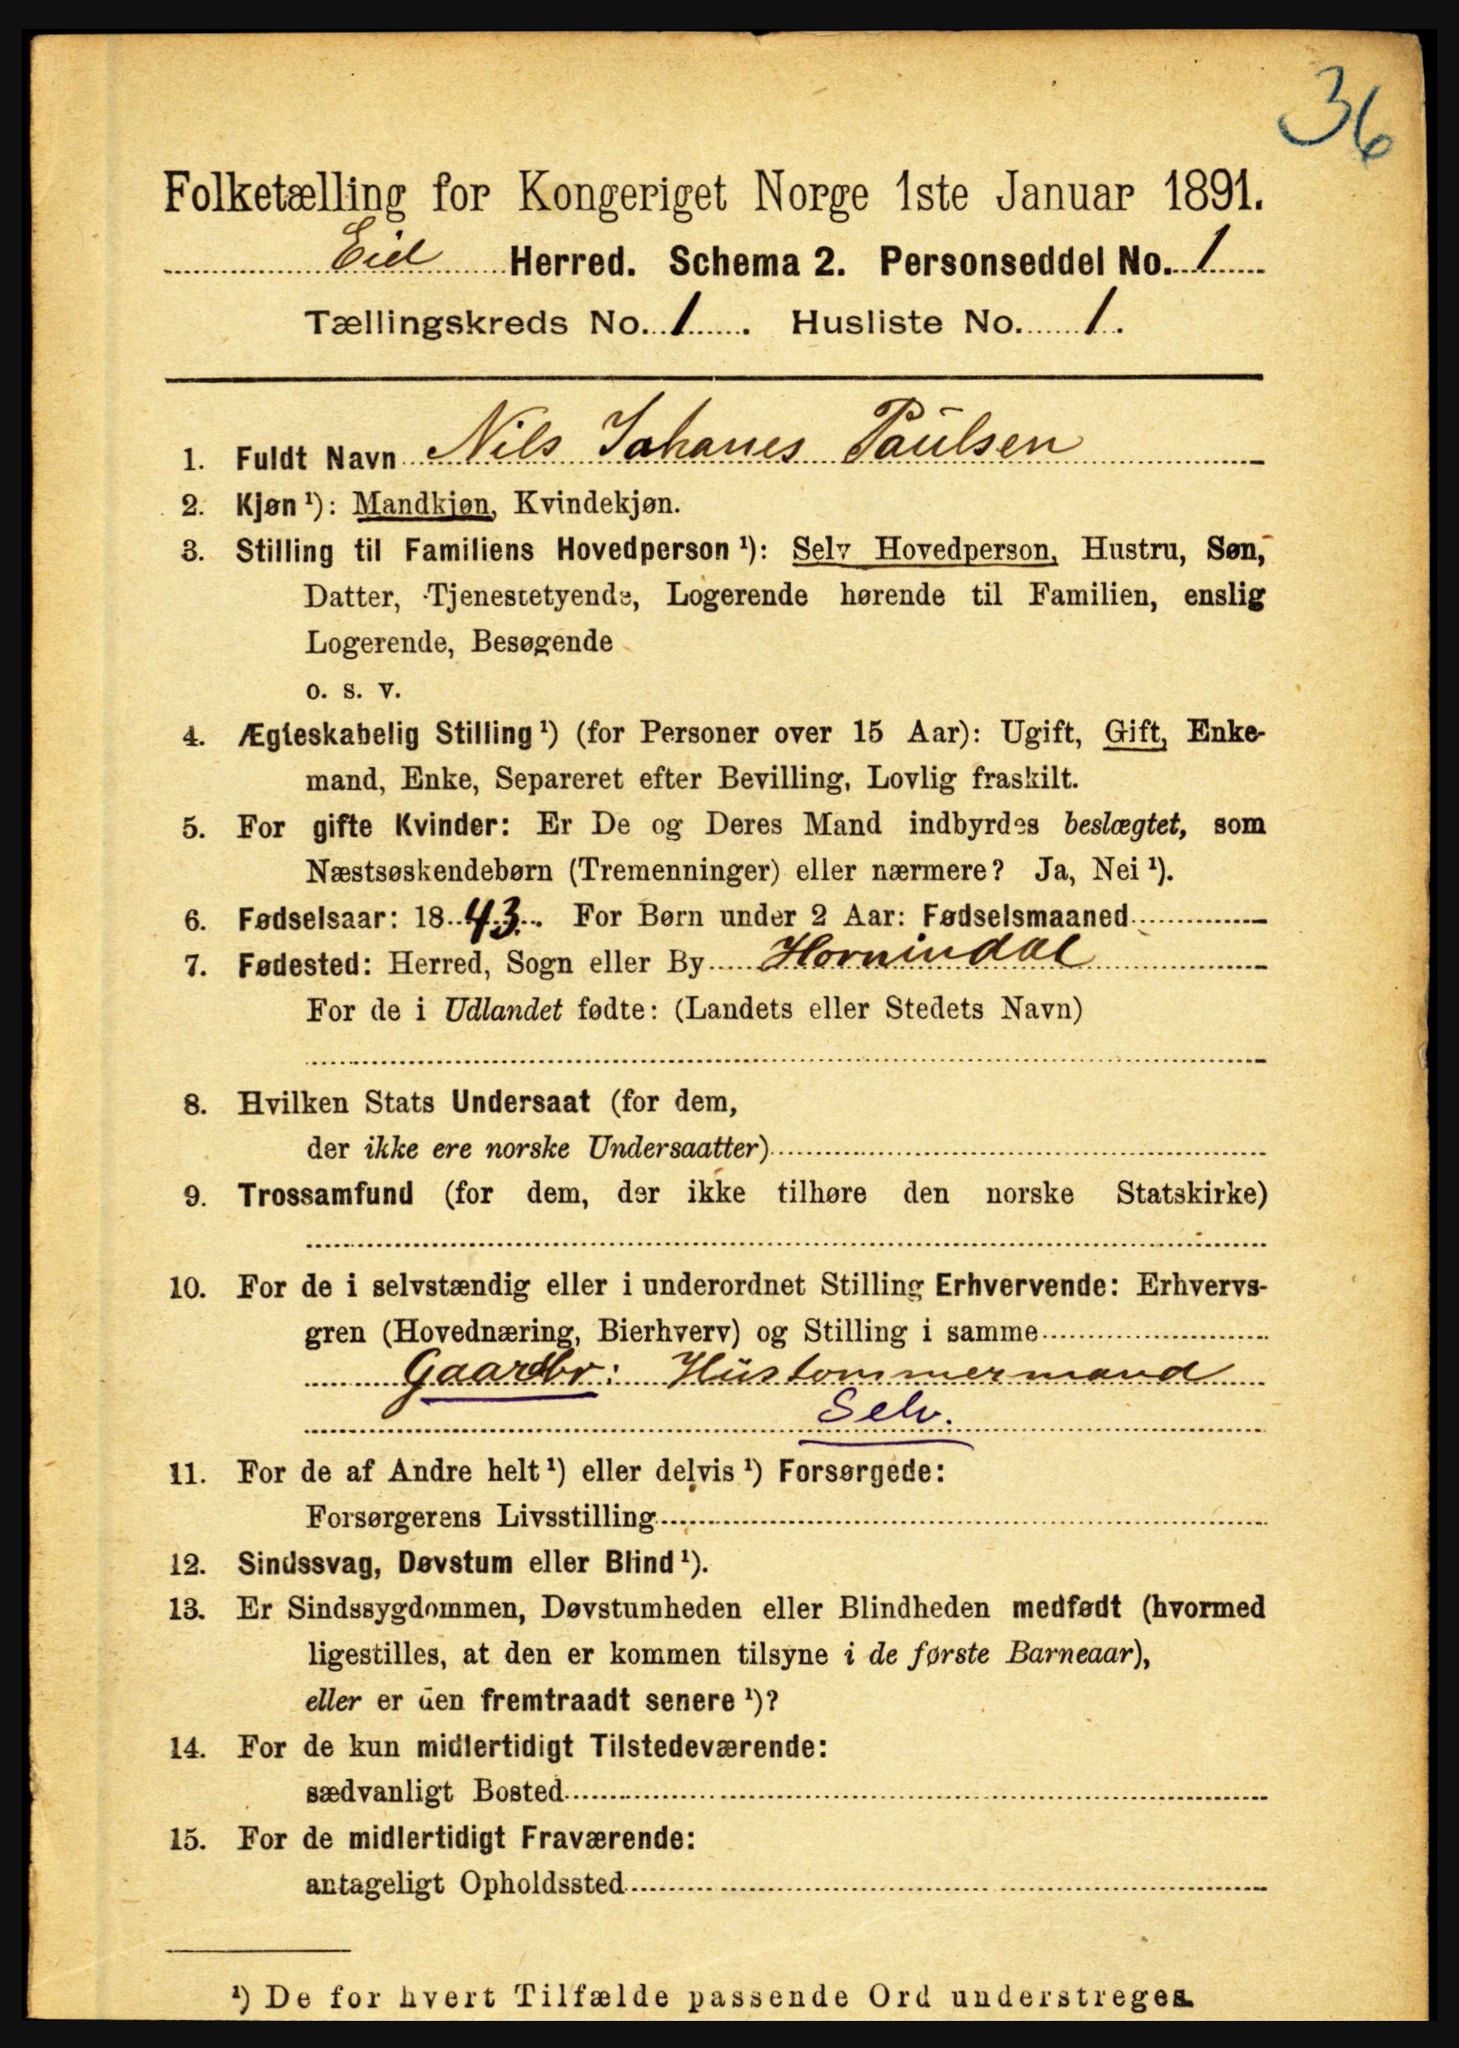 36
Folketælling for Kongeriget Norge 1ste Januar 1891.
Eid Herred. Schema 2. Personseddel No. 1
Tællingskreds No. 1. Husliste No. 1.
1. Fuldt Navn Nils Johanes Paulsen
2. Kjøn ¹): Mandkjøn, Kvindekjøn.
3. Stilling til Familiens Hovedperson ¹): Selv Hovedperson, Hustru, Søn,
Datter, Tjenestetyende, Logerende hørende til Familien, enslig
Logerende, Besøgende
o. s. v.
4. Ægteskabelig Stilling ¹) (for Personer over 15 Aar): Ugift, Gift, Enke-
mand, Enke, Separeret efter Bevilling, Lovlig fraskilt.
5. For gifte Kvinder: Er De og Deres Mand indbyrdes beslægtet, som
Næstsøskendebørn (Tremenninger) eller nærmere? Ja, Nei ¹).
6. Fødselsaar: 1843. For Børn under 2 Aar: Fødselsmaaned
7. Fødested: Herred, Sogn eller By Hornindal
For de i Udlandet fødte: (Landets eller Stedets Navn)
8. Hvilken Stats Undersaat (for dem,
der ikke ere norske Undersaatter)
9. Trossamfund (for dem, der ikke tilhøre den norske Statskirke)
10. For de i selvstændig eller i underordnet Stilling Erhvervende: Erhvervs-
gren (Hovednæring, Bierhverv) og Stilling i samme
Gaardbr: Hustommermand
Selv.
11. For de af Andre helt ¹) eller delvis ¹) Forsørgede:
Forsørgerens Livsstilling
12. Sindssvag, Døvstum eller Blind ¹).
13. Er Sindssygdommen, Døvstumheden eller Blindheden medfødt (hvormed
ligestilles, at den er kommen tilsyne i de første Barneaar),
eller er den fremtraadt senere ¹)?
14. For de kun midlertidigt Tilstedeværende:
sædvanligt Bosted
15. For de midlertidigt Fraværende:
antageligt Opholdssted
¹) De for hvert Tilfælde passende Ord understreges.